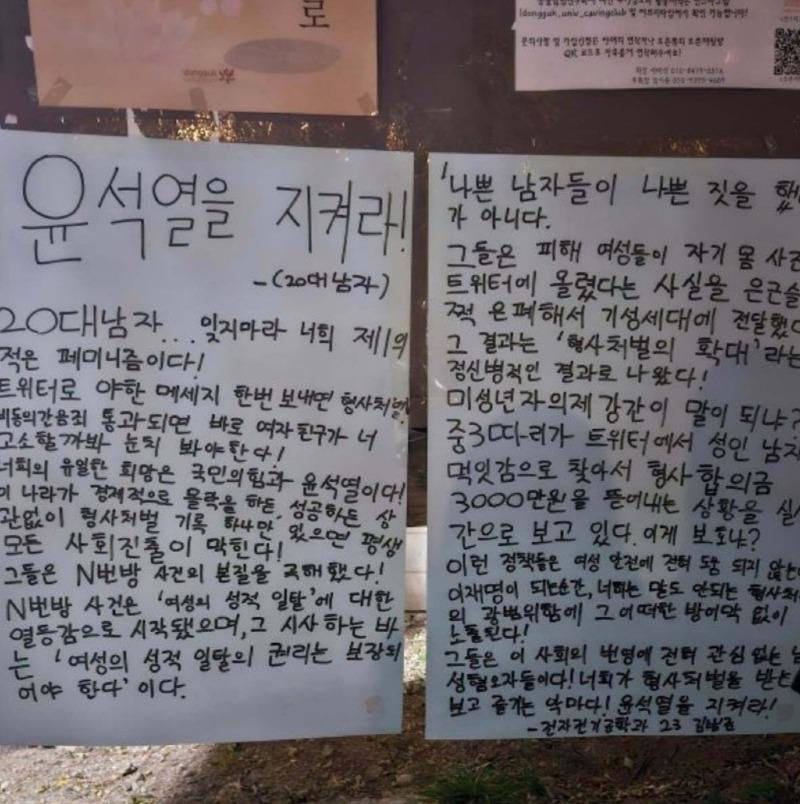 로
(donggah_univ_cavingclub 및 에브리타임에서 확인 가능합니다!
QR 코드로 자유롭게 연락해주세요!
윤석열을 지켜라!
-(20대 남자)
20대남자... 잊지마라 너희 제1의
적은 페미니즘이다!
트위터로 야한 메세지 한번 보내면 형사처벌,
비동의간음죄 통과되면 바로 여자친구가 너
고소할까봐 눈치 봐야한다!
너희의 유일한 희망은 국민의힘과 윤석열이다!
이 나라가 경제적으로 몰락을 하든, 성공하든 상
관없이 형사처벌 기록 하나만 있으면 평생
모든 사회진출이 막힌다!
그들은 N번방 사건의 본질을 곡해했다!
N번방 사건은 '여성의 성적 일탈'에 대한
열등감으로 시작됐으며, 그 시사 하는 바
는 '여성의 성적 일탈의 권리는 보장되
어야 한다'이다.
'나쁜 남자들이 나쁜 짓을 했
가 아니다.
그들은 피해 여성들이 자기 몸 사진
트위터에 올렸다는 사실을 은근슬
쩍 은폐해서 기성세대에 전달했다
그 결과는 '형사처벌의 확대'라는
정신병적인 결과로 나왔다!
미성년자의제강간이 말이 되냐?
중3따리가 트위터에서 성인 남자
먹잇감으로 찾아서 형사 합의금
3000만원을 뜯어내는 상황을 실시
간으로 보고 있다. 이게 보호냐?
이런 정책들은 여성 안전에 전혀 도움 되지 않는
이재명이 되는순간, 너희는 말도 안되는 형사처
의 광범위함에 그 어떠한 방어막 없이
노출된다!
그들은 이 사회의 번영에 전혀 관심 없는 남
성혐오자들이다! 너희가 형사처벌을 받는
보고 즐기는 악마다! 윤석열을 지켜라!
-전자전기공학과 23